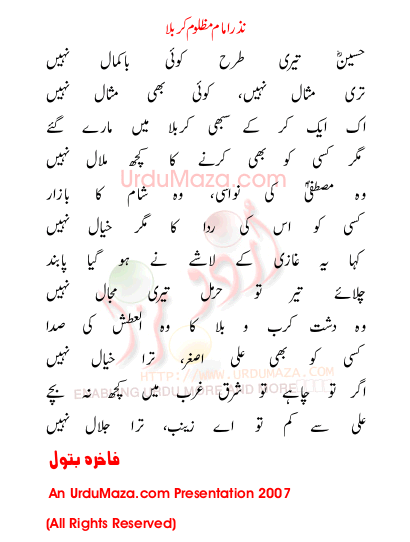 نذر امام مظلوم کربلا
حسینؑ تیری طرح کوئی باکمال نہیں
تری مثال نہیں، کوئی بھی مثال نہیں
اک ایک کر کے سبھی کربلا میں مارے گئے
مگر کسی کو بھی کرنے کا کچھ ملال نہیں
UrduMaza.com
وہ مصطفیٰؐ کی نواسی، وہ شام کا بازار
کسی کو اس کی ردا کا مگر خیال نہیں
کہا یہ غازی کے لاشے نے ہو گیا پابند
چلائے تیر تو حرمل تیری مجال نہیں
وہ دشت کرب و بلا کا وہ العطش کی صدا
کسی کو بھی علی اصغر، ترا خیال نہیں
HTTP://WWW.URDUMAZA.COM
اگر تو چاہے تو شرق غرب میں کچھ نہ بچے
علی سے کم تو اے زینب، ترا جلال نہیں
فاخرہ بتول
An UrduMaza.com Presentation 2007
(All Rights Reserved)